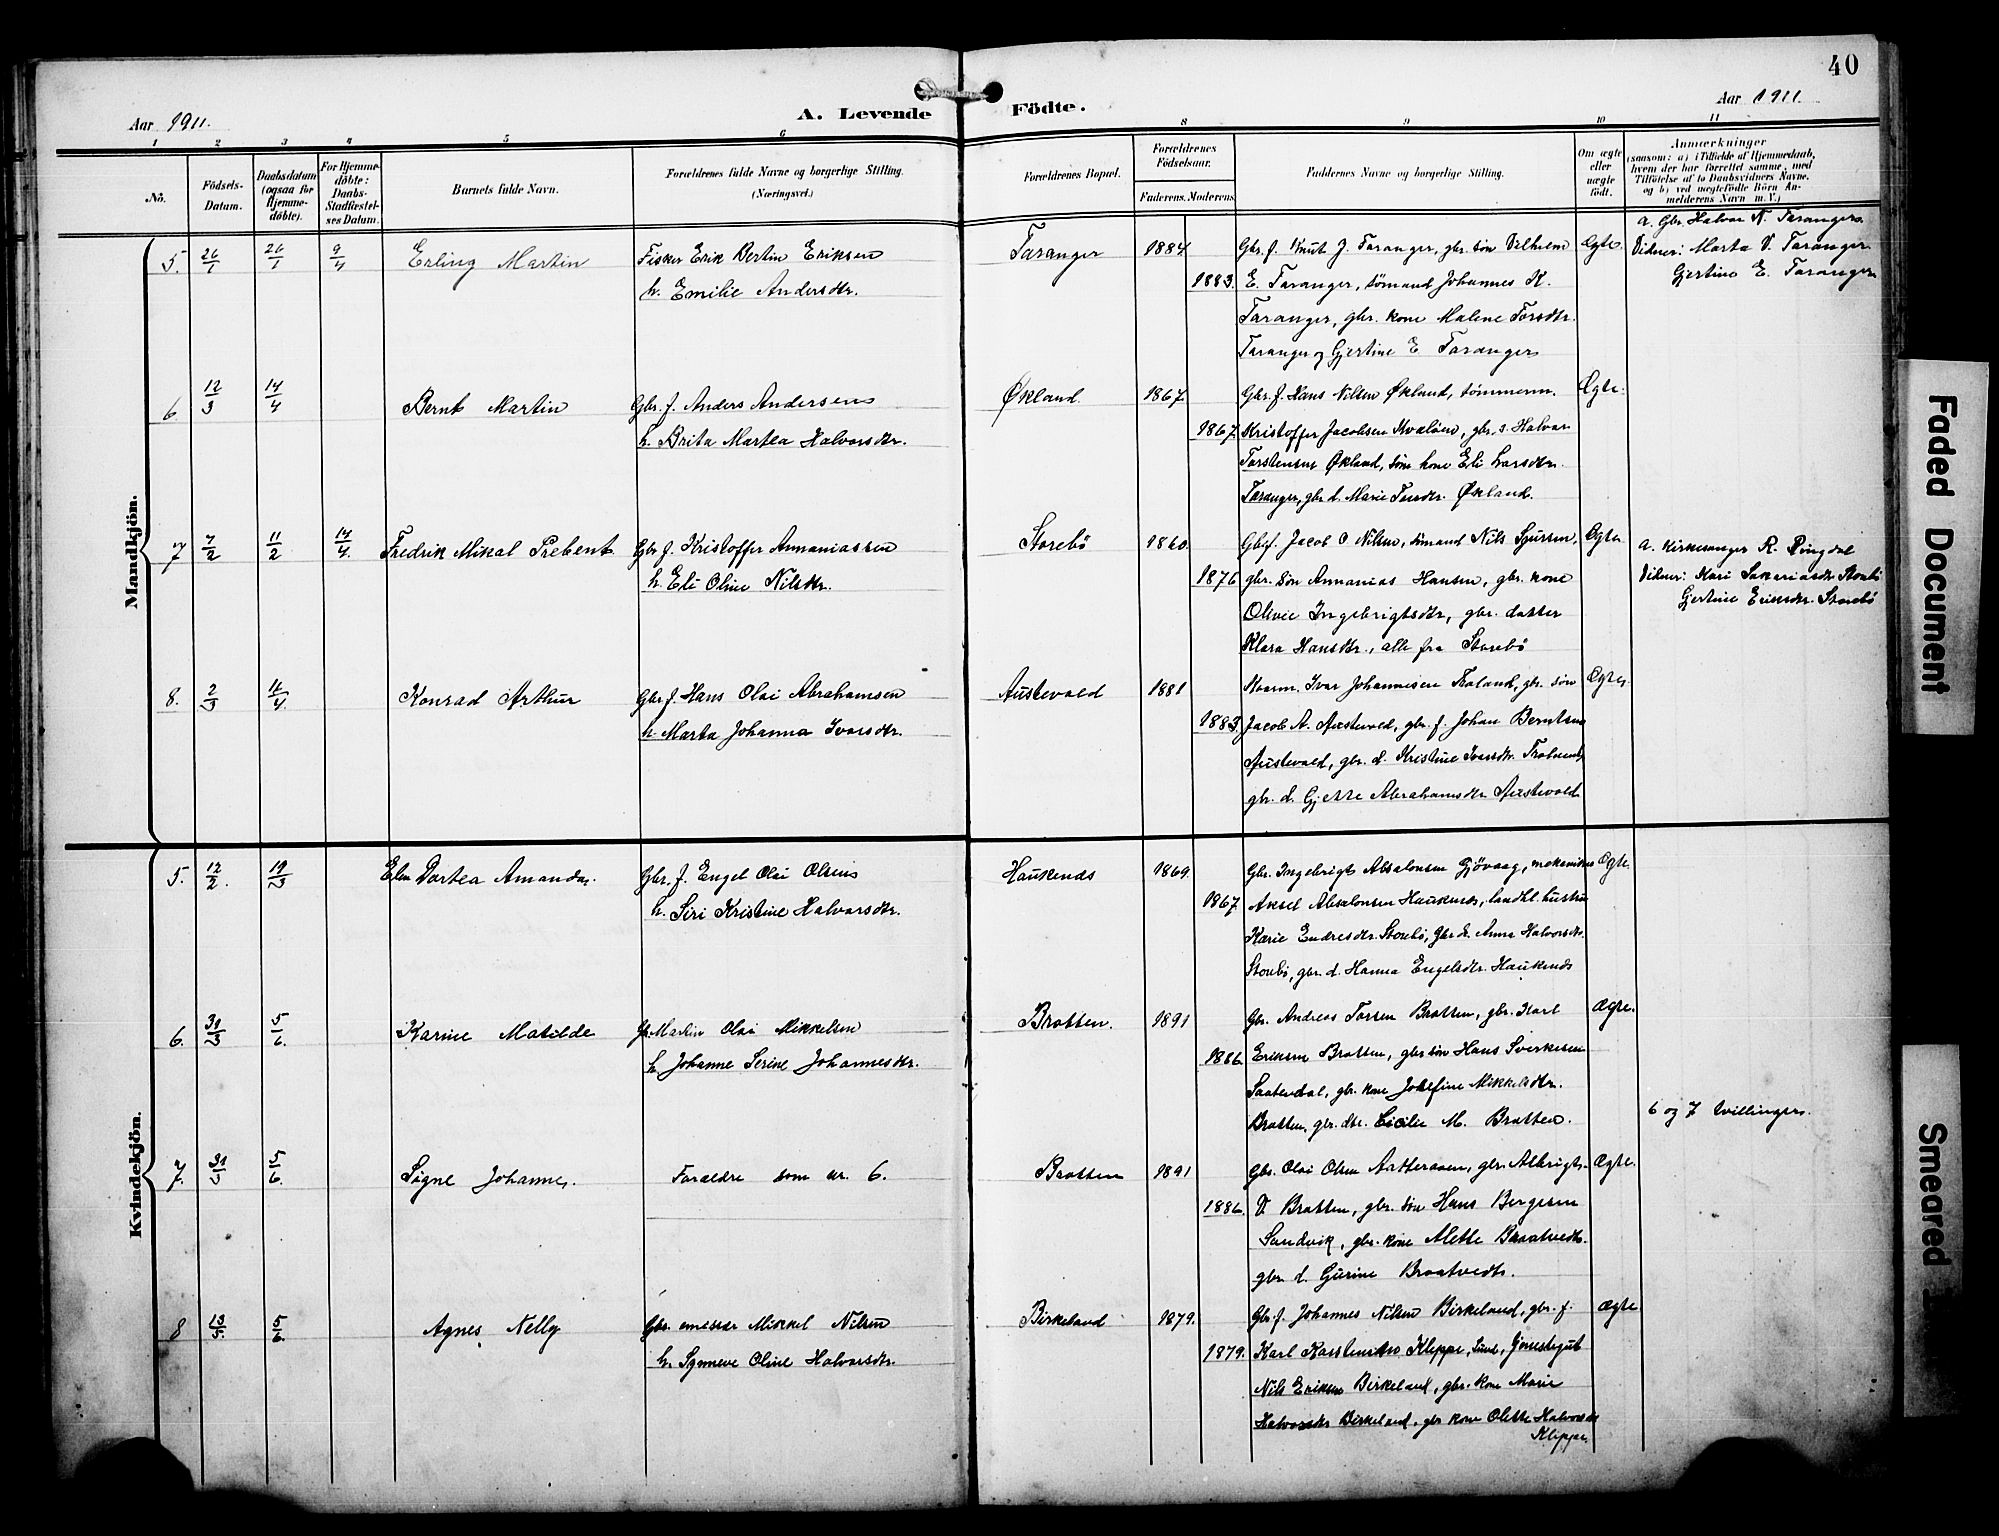 40
Aar 1911.
A. Levende Födte.
Aar 1911.
1 2 3 4 5 6 8 9 10 11
No.
Födsels-Datum.
Daabsdatum (ogsaa for Hjemme-döbte).
For Hjemme-döbte: Daabs-Stadfæstel-ses Datum.
Barnets fulde Navn.
Forældrenes fulde Navne og borgerlige Stilling.
(Næringsvei.)
Forældrenes Bopæl.
Forældrenes Födselsaar.
Faderens. Moderens.
Faddernes Navne og borgerlige Stilling.
Om ægte eller uægte födt.
Anmærkninger
(saasom: a) i Tilfælde af Hjemmedaab,
hvem der har forrettet samme, med
Tilföielse af to Daabsvidners Navne,
og b) ved uægtefödte Börn An-
melderens Navn m. V.)
Mandkjön.
5. 26/1 26/1 9/4 Erling Martin
Fisker Erik Bertin Eriksen
h. Emilie Andersdtr.
Taranger 1884 1883.
Gbr. f. Knut J. Taranger, gbr. søn Vilhelm
E. Taranger, sømand Johannes K.
Taranger, gbr. kone Malene Torsdtr.
Taranger og Gjertine E Taranger
Ægte.
a. Gbr. Halvor N. Taranger
Vidner: Marta V. Taranger
Gjertine E. Taranger
6. 12/3 14/4 Bernt Martin
Gbr. f. Anders Andersen
h. Brita Martea Halvorsdtr.
Økland. 1867 1867.
Gbr. f. Hans Nilsen Økland, tømmerm.
Kristoffer Jacobsen, gbr. s. Halvor
Torstensen Økland, søm. kone Eli Larsdtr.
Taranger, gbr. d. Marie Økland.
Ægte.
7 7/2 11/2 14/4. Fredrik Mikal Prebent
Gbr. f. Kristoffer Annaniassen
h. Eli Oline Nilsdtr.
Storebø 1860. 1876
Gbr. f. Jacob O Nilsen, sømand Nils Sjursen,
gbr. søn Annanias Hansen, gbr. kone
Olivie Ingebrigtsdtr, gbr. datter
Klara Hansdtr., alle fra Storebø
Ægte
a. Kirkesanger R. Ringdal
Vidner: Kari Sakariasdtr Storebø
Gjertine Eriksdtr. Storebø
8. 2/3 16/4. Konrad Arthur
Gbr. f. Hans Olai Abrahamsen
h. Marta Johanna Ivarsdtr.
Austevold 1881 1883.
Ivar Johannesen, gbr. søn
Jacob A. Austevold, gbr. f. Johan Berntsen
Austevold, gbr. d. Kristine Ivarsdtr.
gbr. d. Abrahamsdtr Austevold
Ægte.
Kvindekjön.
5. 12/2. 19/3 Elen Dortea Amanda.
Gbr. f. Engel Olai Olsen
h. Siri Kristine Halvorsdtr.
Haukenæs 1869. 1867.
Gbr. Ingebrigt Absalonsen Gjøvaag, mekaniker
Aksel Absalonsen Haukenæs, landhl. hustru
Karie Endresdtr. Storebø, gbr d. Anna Halvorsdtr.
Storebø, gbr. d. Hanna Engelsdtr. Haukenæs
Ægte.
6. 31/3 5/6. Karine Matilde
Gbr. Martin Olai Mikkelsen
h. Johanne Serine Johannesdtr.
Bratten. 1891 1886.
Gbr. Andreas Torsen Bratten, gbr. Karl
Eriksen Bratten, gbr søn Hans Sverkesen
gbr. kone Josefine Mikkelsdtr.
Bratten, gbr. dtr. Cicilie M. Bratten.
Ægte.
6 og 7 tvillinger.
7. 31/3 5/6. Signe Johanne.
Forældre som nr. 6.
Bratten 1891 1886.
Gbr. Olai Olsen, gbr. Albrigt
V Bratten, gbr. søn Hans Bergesen
Sandvik, gbr. kone Alette
gbr. d. Gurine
Ægte.
8 13/5. 5/6. Agnes Nelly
Gbr. Mikkel Nilsen
h. Synneve Oline Halvorsdtr.
Birkeland 1879. 1879.
Gbr. f. Johannes Nilsen Birkeland, gbr. f.
Karl Karstensen Kleppe,
Nils Eriksen Birkeland, gbr. kone Marie
Halvorsdtr Birkeland, gbr kone Olette Halvorsdtr
Kleppe.
Ægte
Faded Document
Smeared